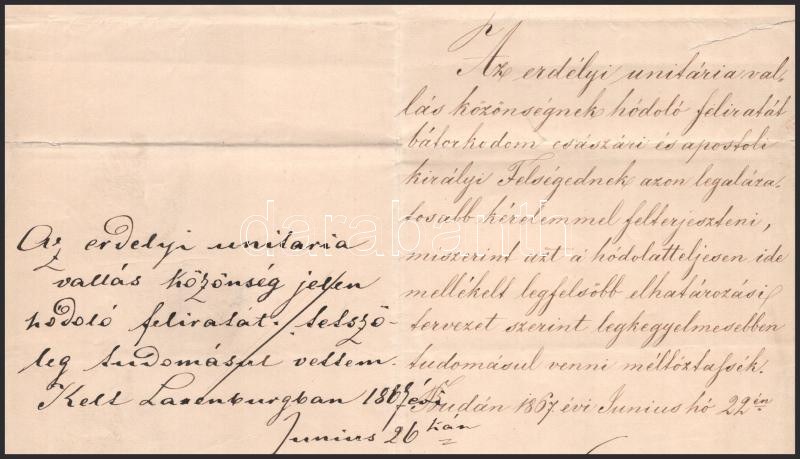 Az erdélyi unitária val-
lás közönségnek hódoló feliratát
bátorkodom császári és apostoli
királyi Felségednek azon legaláza-
tosabb kérelemmel felterjeszteni,
miszerint azt a hódolatteljesen ide
mellékelt legfelsőbb elhatározási
tervezet szerint legkegyelmesebben
tudomásul venni méltóztassék.
Budán 1867 évi Junius hó 22én
Az erdelyi unitaria
vallás közönség jelen
hódoló feliratát tetszö-
leg tudomásul vettem.
Kelt Laxenburgban 1867 évi
Junius 26kán
darabanth